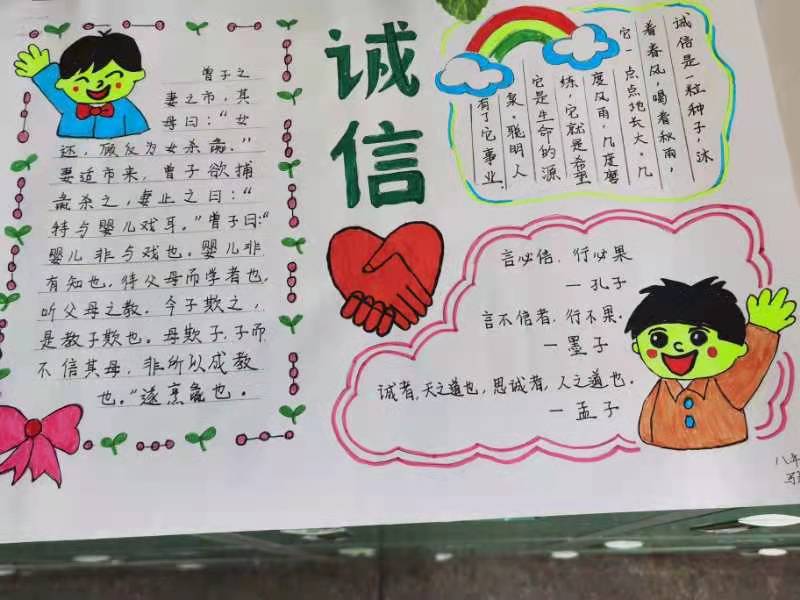 曾子之
妻之市,其
母曰:“女
还,顾反为女杀彘。”
妻适市来,曾子欲捕
彘杀之,妻止之曰:“
特与婴儿戏耳。”曾子曰:“
婴儿非与戏也。婴儿非
有知也,待父母而学者也,
听父母之教。今子欺之,
是教子欺也。母欺子,子而
不信其母,非所以成教
也。”遂烹彘也。
诚
信
诚信是一粒种子,沐
着春风,喝着秋雨,
它一点点地长大。几
度风雨,几度磨
练,它就是希望
它是生命的源
泉。聪明人
有了它事业
言必信,行必果
—孔子
言不信者,行不果。
—墨子
诚者,天之道也,思诚者,人之道也。
—孟子
八年